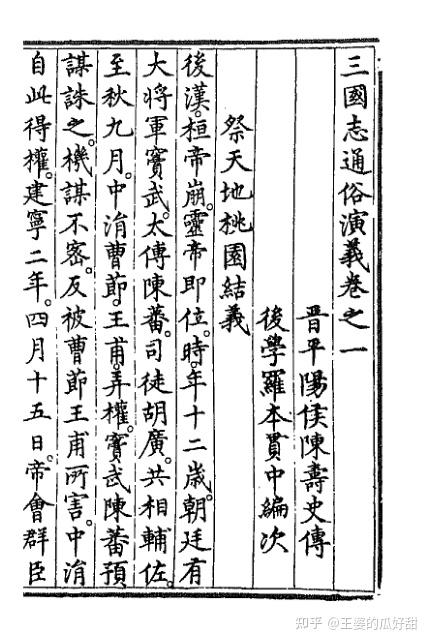 三國志通俗演義卷之一
晋平陽侯陳壽史傳
後學羅本貫中編次
祭天地桃園結義
後漢。桓帝崩。靈帝即位。時年十二歲。朝廷有
大將軍竇武。太傅陳蕃。司徒胡廣。共相輔佐。
至秋九月。中涓曹節。王甫。弄權。竇武陳蕃預
謀誅之。機謀不密。反被曹節王甫所害。中涓
自此得權。建寧二年。四月十五日。帝會群臣
知乎 @王婆的瓜好甜